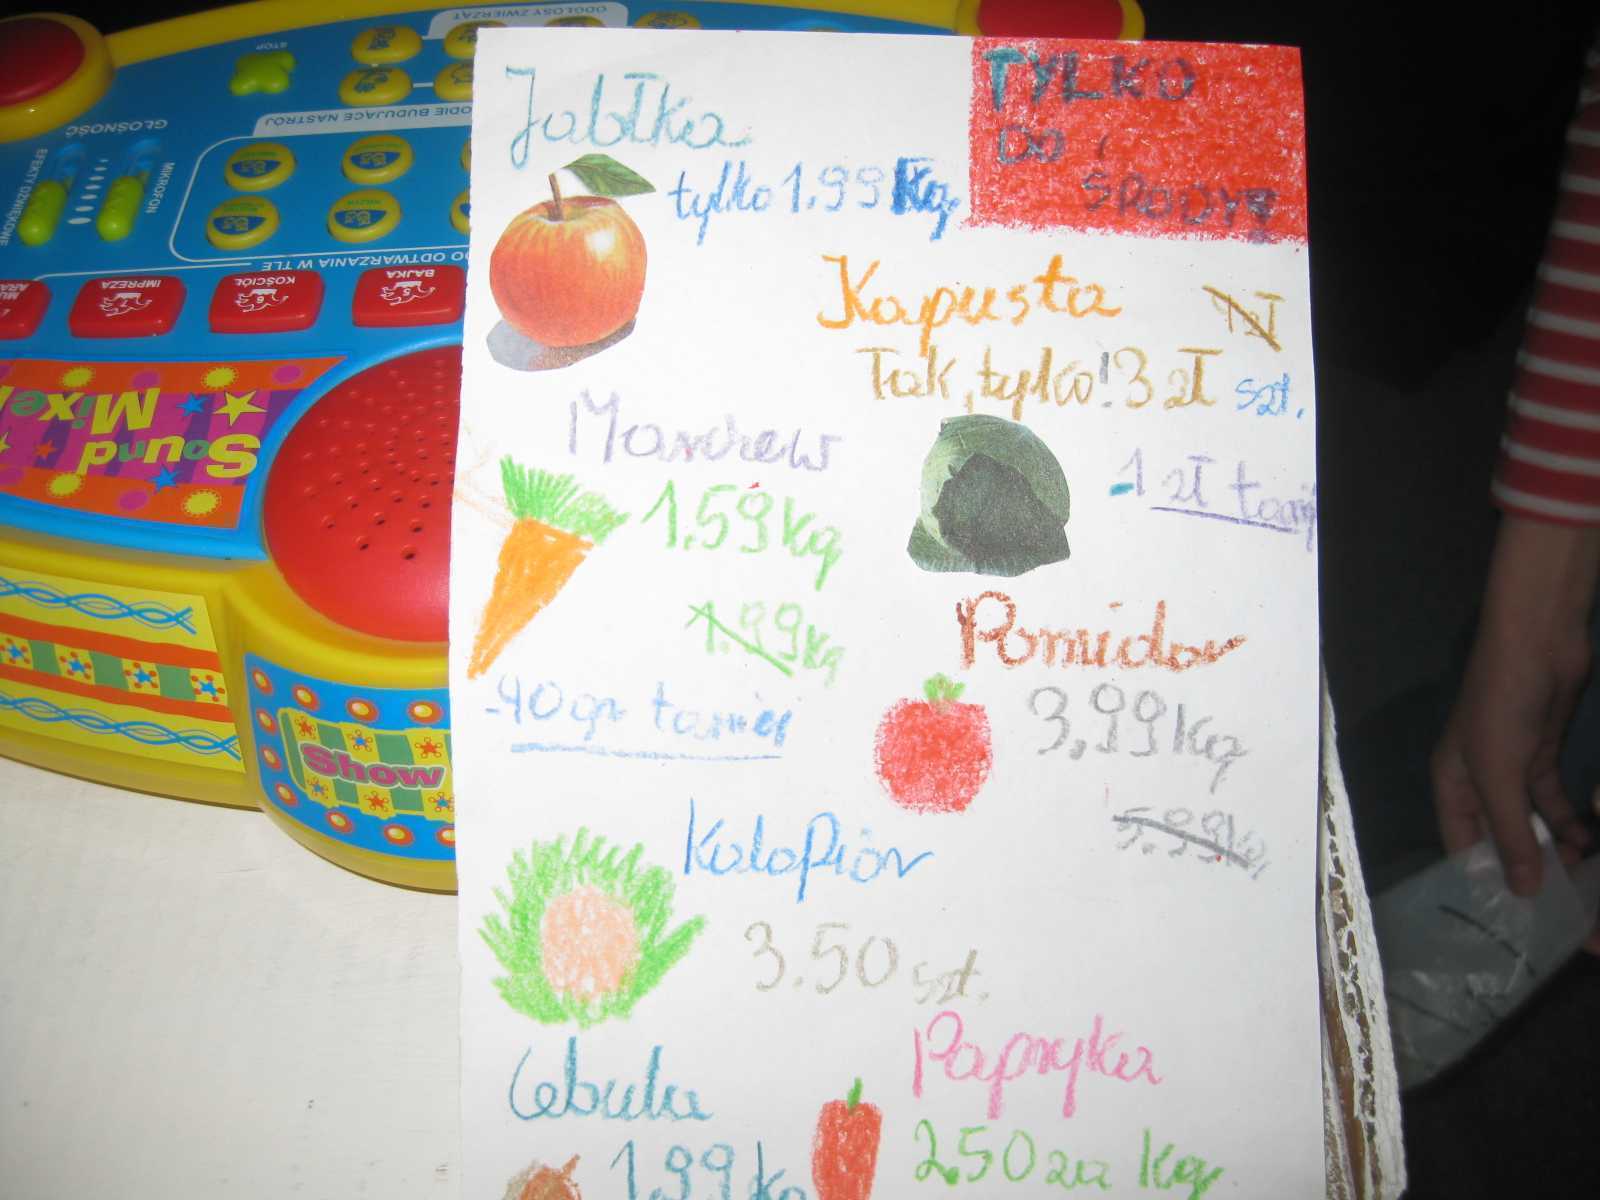 Jabłka
tylko 1.99 Kg
TYLKO
DO
ŚRODY!
Kapusta
Tak, tylko! 3 zł szt.
-1 zł tan
Marchew
1.59 Kg
1.99 Kg
-40 gr taniej
Pomidor
3,99 Kg
5.99 Kg
Kalafior
3.50 szt.
Cebula
1.99 Kg
Papryka
2.50 za Kg
ODGŁOSY ZWIERZĄT
STOP
ODIE BUDUJĄCE NASTRÓJ
GŁOŚNOŚĆ
EFEKTY DŹWIĘKOWE
MIKROFON
DO ODTWARZANIA W TLE
BAJKA
5
KOŚCIÓŁ
6
IMPREZA
7
Sound
Mixer
Show